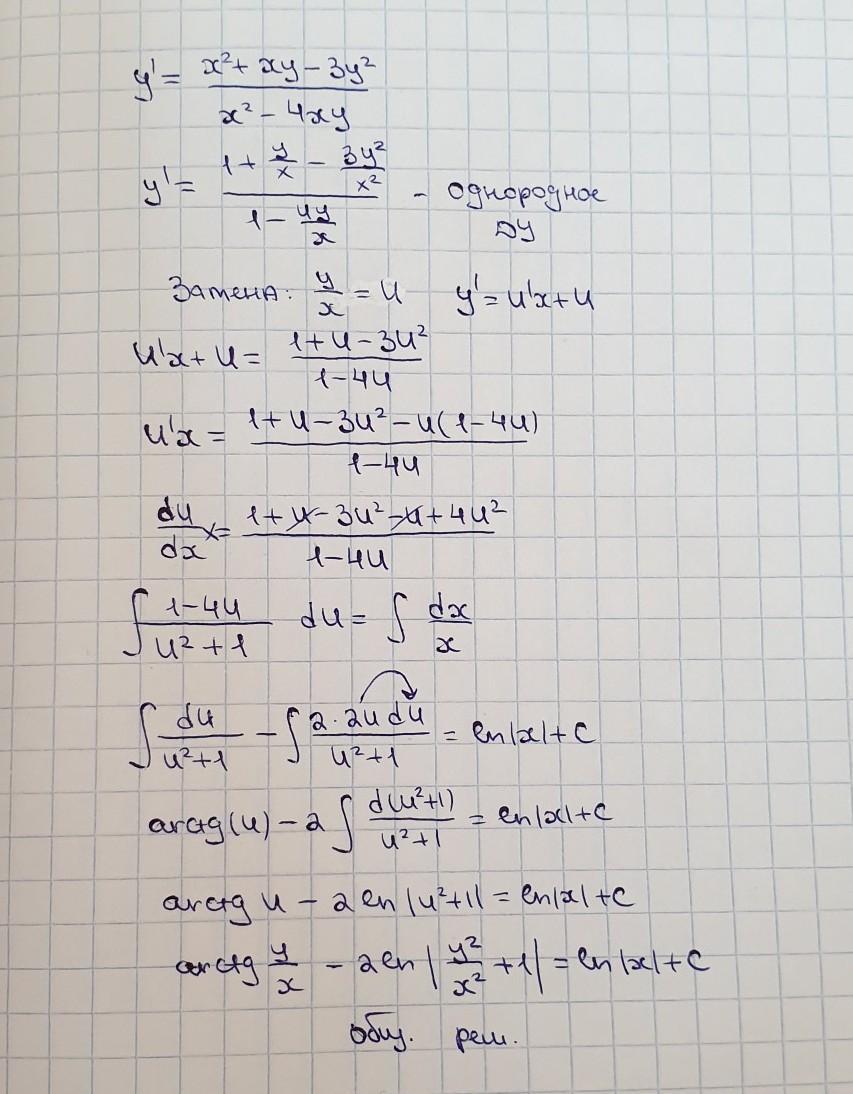 y' = (x² + xy - 3y²) / (x² - 4xy)
y' = (1 + y/x - 3y²/x²) / (1 - 4y/x) - однородное
ДУ
Замена: y/x = u   y' = u'x + u
u'x + u = (1 + u - 3u²) / (1 - 4u)
u'x = (1 + u - 3u² - u(1 - 4u)) / (1 - 4u)
du/dx x = (1 + u - 3u² - u + 4u²) / (1 - 4u)
∫ (1 - 4u) / (u² + 1) du = ∫ dx/x
∫ du / (u² + 1) - ∫ (2 · 2u du) / (u² + 1) = ln|x| + C
arctg(u) - 2 ∫ d(u² + 1) / (u² + 1) = ln|x| + C
arctg u - 2 ln|u² + 1| = ln|x| + C
arctg y/x - 2 ln|y²/x² + 1| = ln|x| + C
общ. реш.